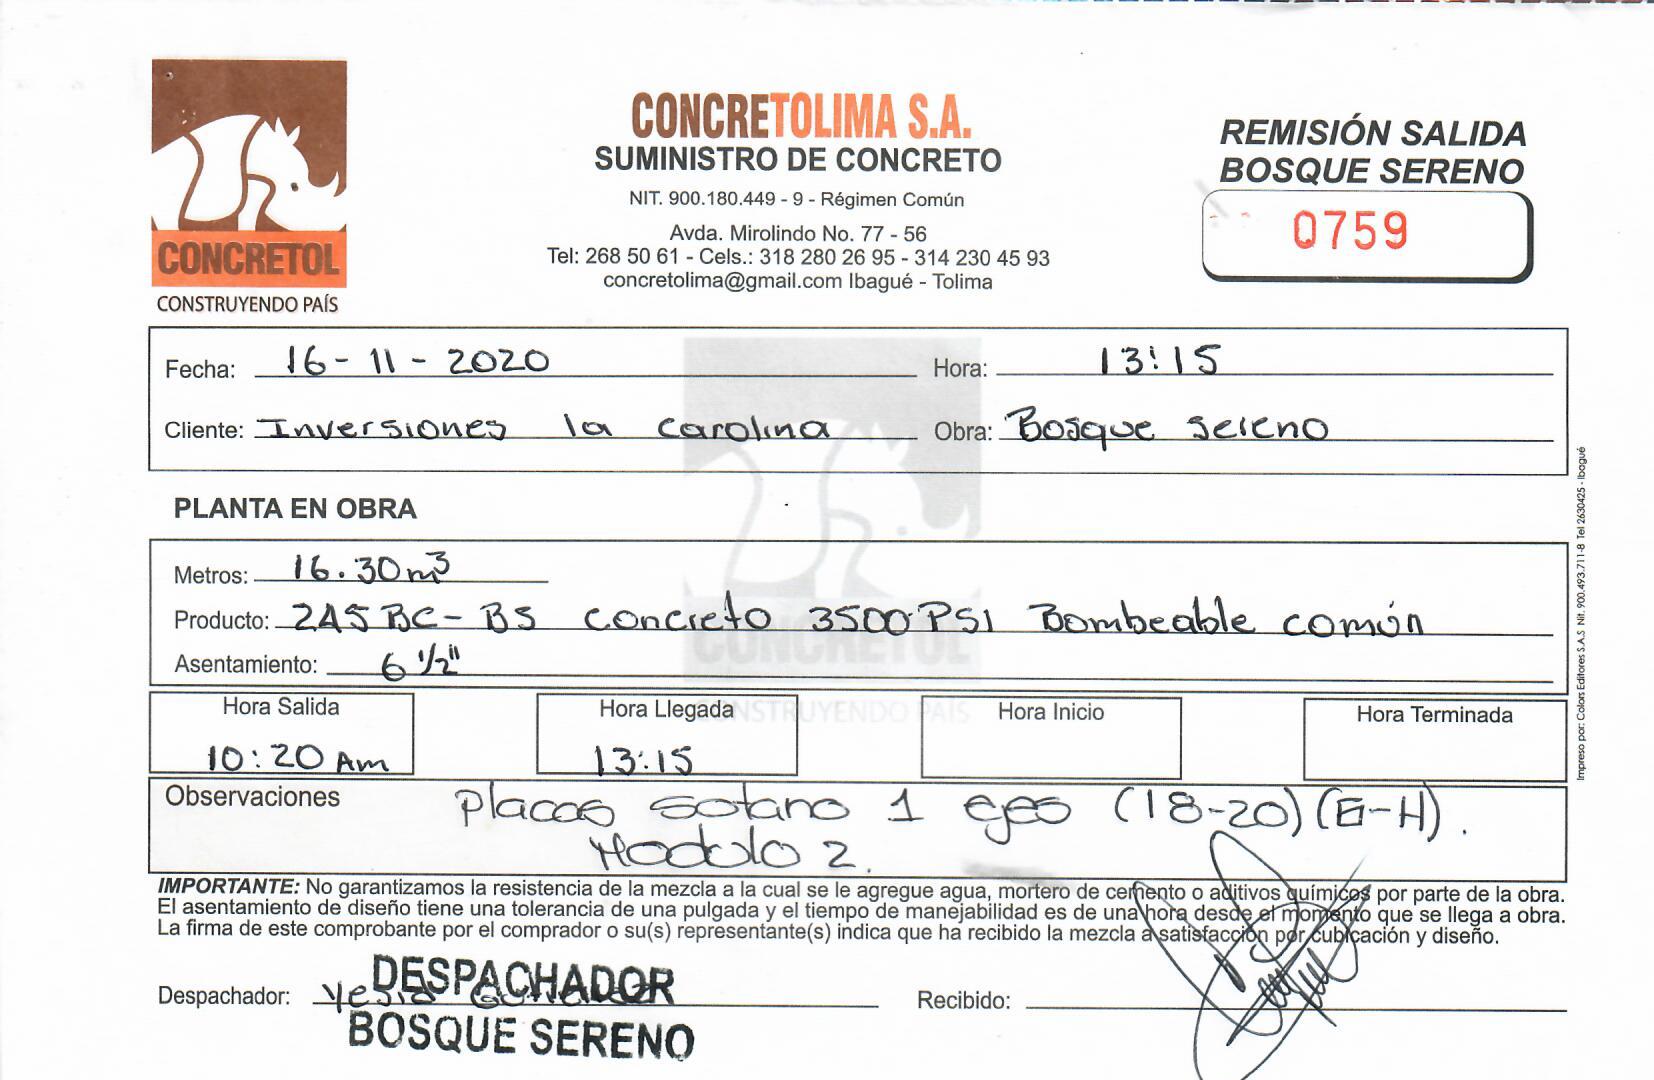 CONCRETOL
CONSTRUYENDO PAÍS
CONCRETOLIMA S.A.
SUMINISTRO DE CONCRETO
NIT. 900.180.449 - 9 - Régimen Común
Avda. Mirolindo No. 77 - 56
Tel: 268 50 61 - Cels.: 318 280 26 95 - 314 230 45 93
concretolima@gmail.com Ibagué - Tolima
REMISIÓN SALIDA
BOSQUE SERENO
0759
Fecha: 16-11-2020 Hora: 13:15
Cliente: Inversiones la carolina Obra: Bosque sereno
PLANTA EN OBRA
Metros: 16.30 m³
Producto: 2A5BC-BS concreto 3500 PSI Bombeable común
Asentamiento: 6 1/2"
CONCRETOL
CONSTRUYENDO PAÍS
Hora Salida Hora Llegada Hora Inicio Hora Terminada
10:20 Am 13:15
Observaciones Placas sotano 1 ejes (18-20) (E-H).
Modulo 2.
IMPORTANTE: No garantizamos la resistencia de la mezcla a la cual se le agregue agua, mortero de cemento o aditivos químicos por parte de la obra.
El asentamiento de diseño tiene una tolerancia de una pulgada y el tiempo de manejabilidad es de una hora desde el momento que se llega a obra.
La firma de este comprobante por el comprador o su(s) representante(s) indica que ha recibido la mezcla a satisfacción por cubicación y diseño.
Despachador: DESPACHADOR
BOSQUE SERENO
Recibido:
Impreso por: Colors Editores S.A.S Nit. 900.493.711-8 Tel 2630425 - Ibagué